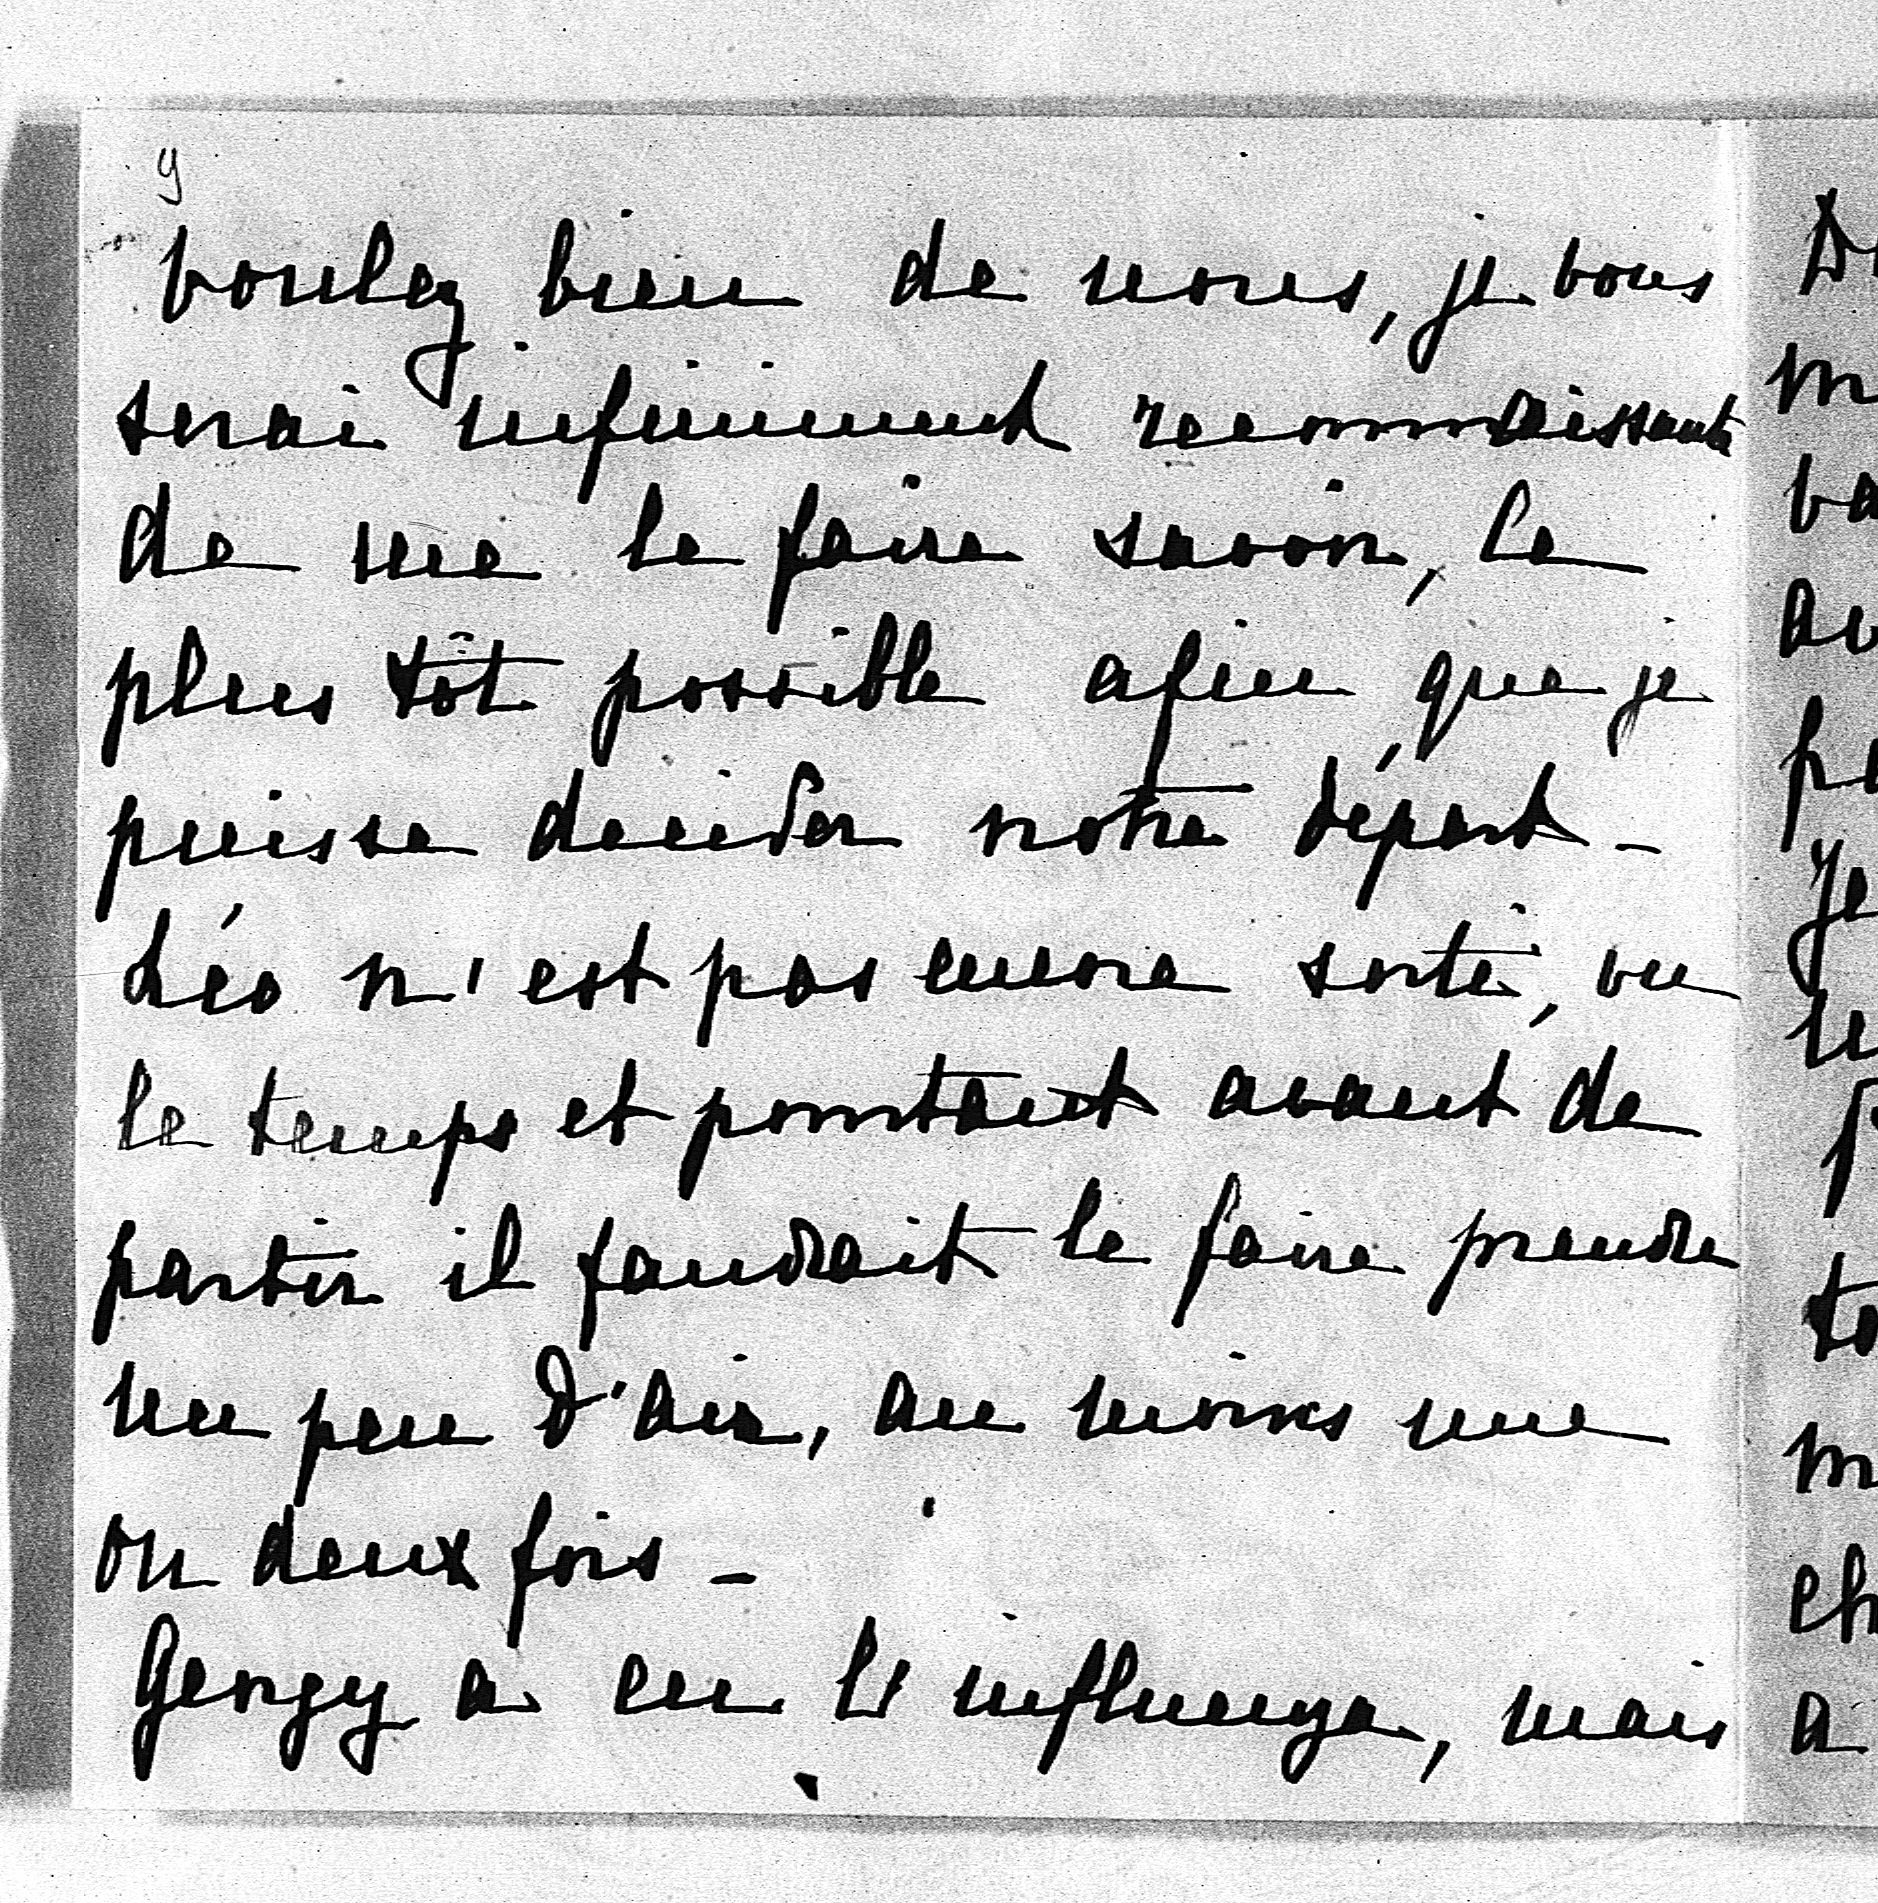 9
voulez bien de nous, je vous
serai infiniment reconnaissante
de me le faire savoir, le
plus tôt possible afin que je
puisse décider notre départ -
Léo n'est pas encore sorti, vu
le temps et pourtant avant de
partir il faudrait le faire prendre
un peu d'air, au moins une
ou deux fois -
Georgy a eu l'influenza, mais